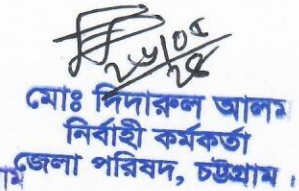 ২৮/০৫
২৫
মোঃ দিদারুল আলম
নির্বাহী কর্মকর্তা
জেলা পরিষদ, চট্টগ্রাম।